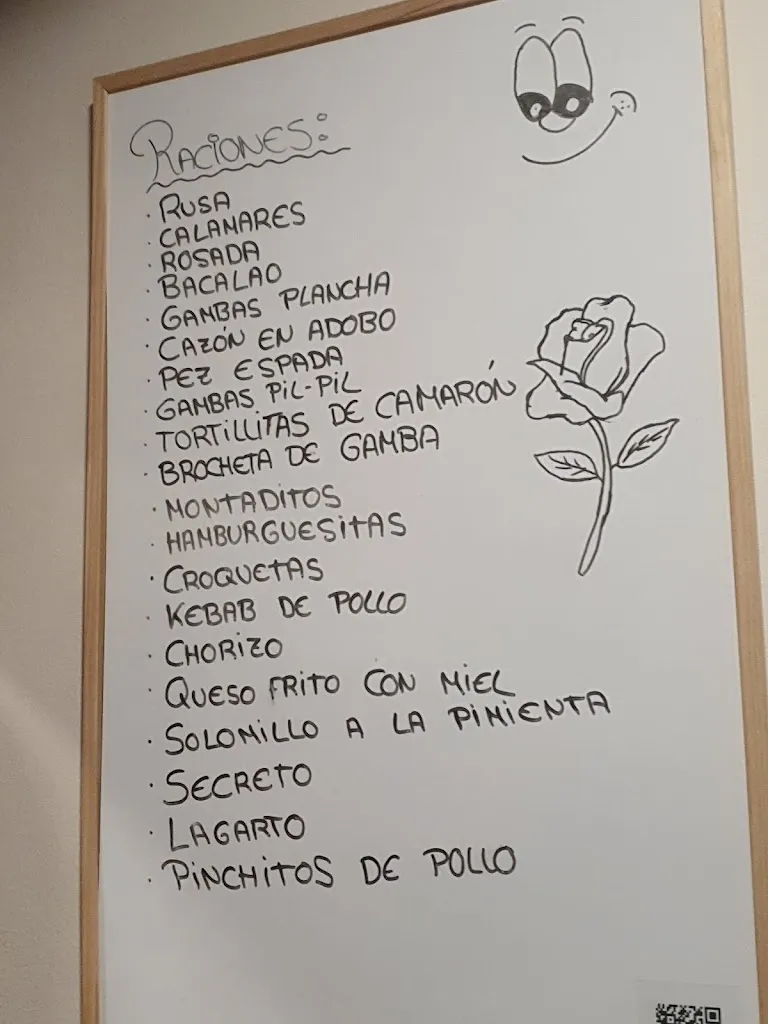 RACIONES:
· RUSA
· CALAMARES
· ROSADA
· BACALAO
· GAMBAS PLANCHA
· CAZÓN EN ADOBO
· PEZ ESPADA
· GAMBAS PIL-PIL
· TORTILLITAS DE CAMARÓN
· BROCHETA DE GAMBA
· MONTADITOS
· HAMBURGUESITAS
· CROQUETAS
· KEBAB DE POLLO
· CHORIZO
· QUESO FRITO CON MIEL
· SOLOMILLO A LA PIMIENTA
· SECRETO
· LAGARTO
· PINCHITOS DE POLLO